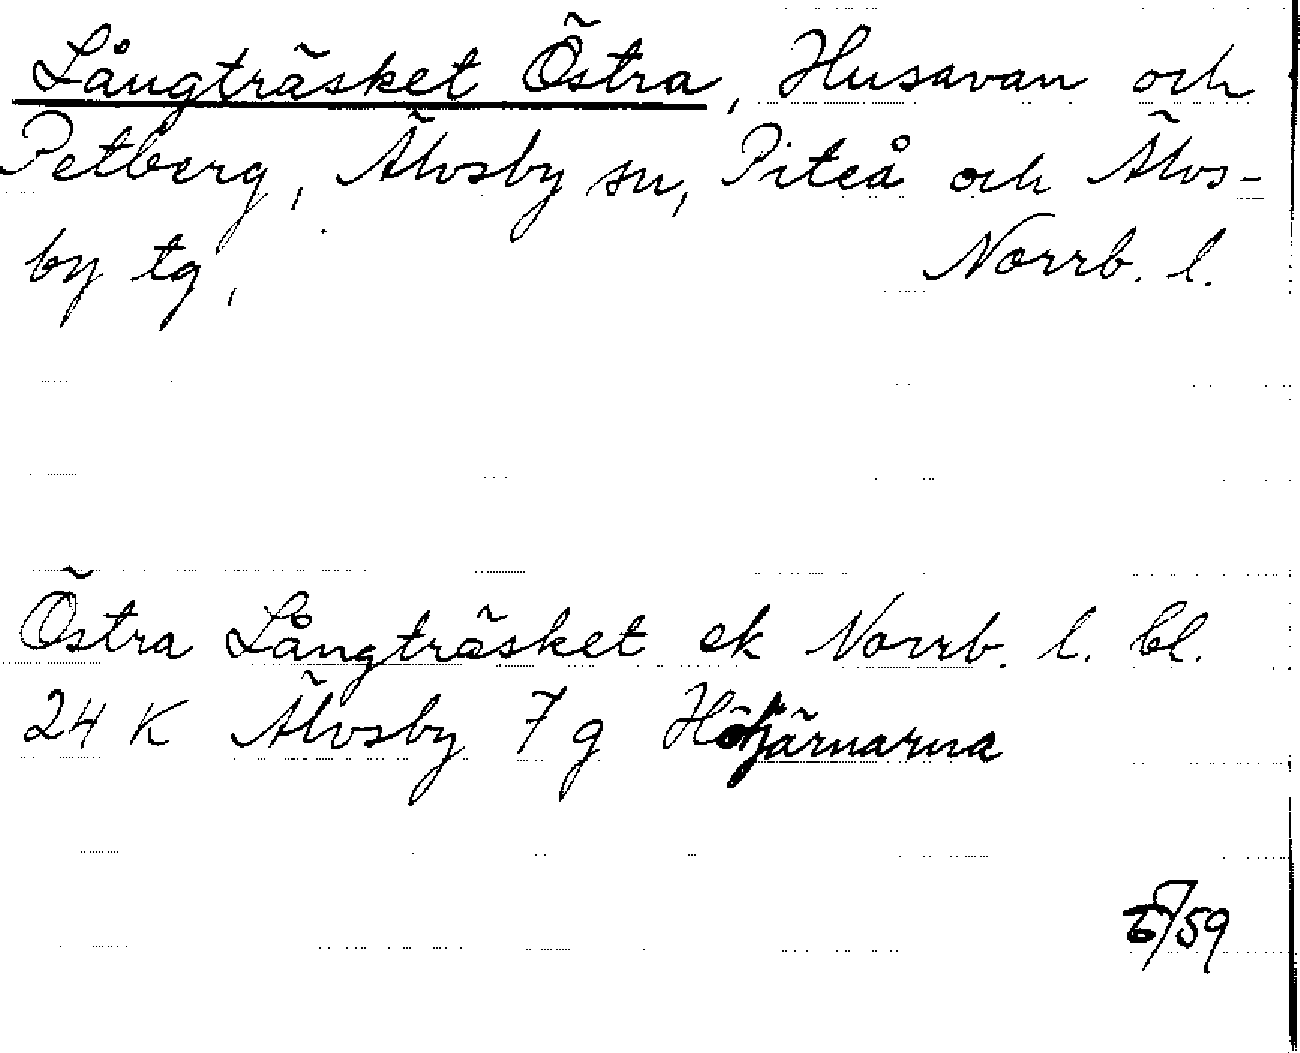 Långträsket Östra, Husavan och
Petberg, Älvsby sn, Piteå och Älvs-
by tg, Norrb. l.
Östra Långträsket ek Norrb. l. bl.
24 K Älvsby 7 g
/59